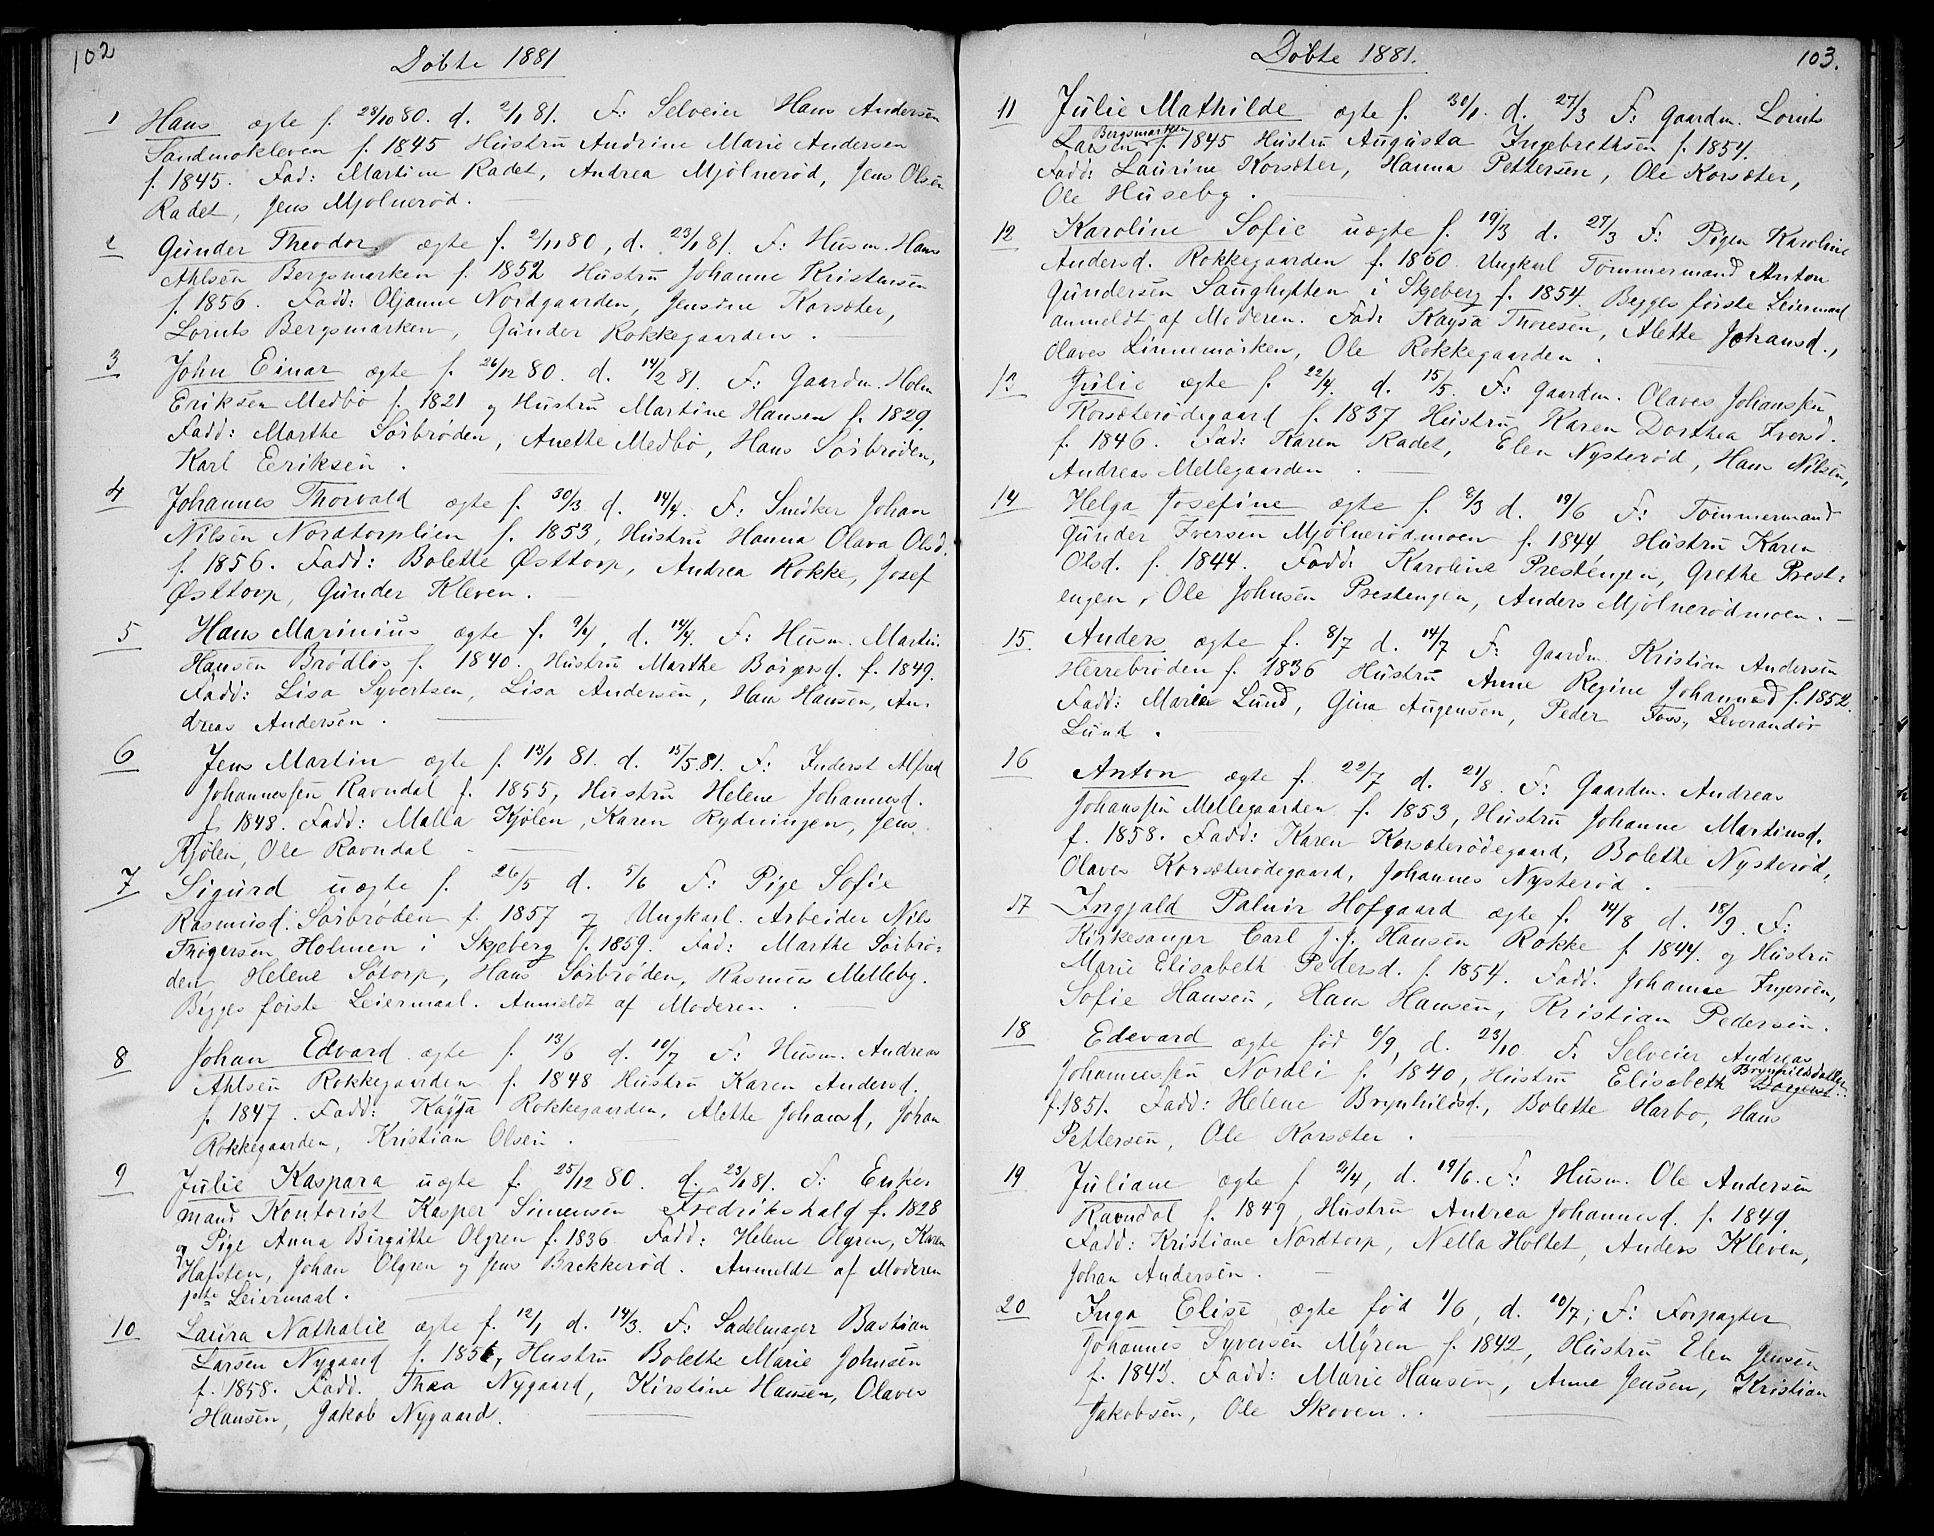 102
Döbte 1881
1 Hans ægte f. 28/10 80. d. 2/1 81. F: Selveier Hans Andersen
Sandmokleven f. 1845 Hustru Andrine Marie Andersen
f. 1845. Fad: Martine Radet, Andrea Mjölneröd, Jens Olsen
Radet, Jens Mjölneröd.
2 Gunder Theodor ægte f. 2/11 80, d. 23/1 81. F: Husm. Hans
Ahlsen Bergsmarken f. 1852 Hustru Johanne Kristensen
f. 1856. Fadd: Oljanne Nordgaarden, Jensine Korsæter,
Lornts Bergsmarken, Gunder Rokkegaarden.
3 John Einar ægte f. 26/12 80. d. 14/2 81. F: Gaardm. Holm
Eriksen Medbö f. 1821 og Hustru Martine Hansen f. 1829.
Fadd: Marthe Soibröden, Anette Medbö, Hans Soibröden,
Karl Eeriksen.
4 Johannes Thorvald ægte f. 30/3 d. 14/4. F: Snedker Johan
Nilsen Nordtorplien f. 1853, Hustru Hanna Olava Olsd.
f. 1856. Fadd: Bolette Østtorp, Andrea Rokke, Josef
Østtorp, Gunder Kleven.
5 Hans Marinius ægte f. 9/4, d. 14/4. F: Husm. Martin
Hansen Brödlös f. 1840. Hustru Marthe Börgersd. f. 1849.
Fadd: Lisa Syvertsen, Lisa Andersen, Hans Hansen, An-
dreas Andersen.
6 Jens Martin ægte f. 13/1 81. d. 15/5 81. F: Inderst Alfred
Johannessen Ravndal f. 1855, Hustru Helene Johannesd.
f. 1848. Fadd: Malla Kjölen, Karen Rydningen, Jens
Kjölen, Ole Ravndal
7 Sigurd uægte f. 26/5 d. 5/6 F: Pige Sofie
Rasmusd. Soibröden f. 1857 og Ungkarl. Arbeider Nils
Thögersen Holmen i Skjeberg f. 1859. Fad: Marthe Soibrö-
den, Helene Sötorp, Hans Soibröden, Rasmus Melleby.
Begges förste Leiermaal. Anmeldt af Moderen.
8 Johan Edvard ægte f. 13/6 d. 10/7 F: Husm. Andreas
Ahlsen Rokkegaarden f. 1848 Hustru Karen Andersd.
f. 1847. Fadd: Kaysa Rokkegaarden, Alette Johansd, Johan
Rokkegaarden, Kristian Olsen.
9 Julie Kaspara uægte f. 25/12 80. d. 23/1 81. F: Enke-
mand Kontorist Kasper Simensen Fredrikshald f. 1828
og Pige Anna Birgitte Olgren f. 1836. Fadd: Helene Olgren, Karen
Hafsten, Johan Olgren og Jens Brekkeröd. Anmeldt af Moderen
1ste Leiermaal.
10 Laura Nathalie ægte f. 12/1 d. 14/3. F: Sadelmager Bastian
Larsen Nygaard f. 1851, Hustru Bolette Marie Johnsen
f. 1858. Fadd. Thea Nygaard, Kirstine Hansen, Olaves
Hansen, Jakob Nygaard.
103.
Döbte 1881.
11 Julie Mathilde ægte f. 30/1. d. 27/3 F: Gaardm. Lornts
Bergsmarken
Larsen f. 1845 Hustru Augusta Ingebrethsen f. 1854.
Fadd: Laurine Korsæter, Hanna Pettersen, Ole Korsæter,
Ole Huseby.
12 Karoline Sofie uægte f. 19/3 d. 27/3 F: Pigen Karoline
Andersd. Rokkegaarden f. 1860. Ungkarl Tömmermand Anton
Gundersen Saughytten i Skjeberg f. 1854. Begges förste Leiermaal
anmeldt af Moderen. Fad: Kaysa Thoresen, Alette Johansd.,
Olaves Linnemarken, Ole Rokkegaarden.
13 Julie ægte f. 22/4. d. 15/5. F: Gaardm. Olaves Johanssen
Korsæterödegaard f. 1837 Hustru Karen Dorthea Iversd.
f. 1846. Fad: Karen Radet, Elen Nysteröd, Hans Nilsen,
Andreas Mellegaarden.
14 Helga Josefine ægte f. 8/3 d. 19/6 F: Tömmermand
Gunder Iversen Mjölnerödmoen f. 1844, Hustru Karen
Olsd. f. 1844. Fadd: Karoline Prestengen, Grethe Prest-
engen, Ole Johnsen Prestengen, Anders Mjölnerödmoen.
15. Anders ægte f. 8/7 d. 14/7 F: Gaardm. Kristian Andersen
Herrebröden f. 1836 Hustru Anne Regine Johannesd f. 1852.
Fadd: Marie Lund, Gina Augensen, Peder Foss, Leverandör
Lund.
16 Anton ægte f. 22/7 d. 21/8. F: Gaardm. Andreas
Johanssen Mellegaarden f. 1853, Hustru Johanne Martinsd.
f. 1858. Fadd: Karen Korsæterödegaard, Bolette Nysteröd,
Olaves Korsæterödegaard, Johannes Nysteröd.
17 Ingjald Palnir Hofgaard ægte f. 14/8 d. 18/9. F:
Kirkesanger Carl J. J. Hansen Rokke f. 1844. og Hustru
Marie Elisabeth Pedersd. f. 1854. Fadd: Johanne Ingeröen,
Sofie Hansen, Hans Hansen, Kristian Pedersen.
18 Edevard ægte föd 6/9, d. 23/10 F. Selveier Andreas
Johannessen Nordli f. 1840, Hustru Elisabeth Brynhildsdatter
f. 1851. Fadd: Helene Brynhildsd., Bolette Harbo, Hans
Pettersen, Ole Korsæter.
19 Juliane ægte f. 2/4, d. 19/6. F: Husm. Ole Andersen
Ravndal f. 1849, Hustru Andrea Johannesd. f. 1849.
Fadd: Kristiane Nordtorp, Nella Holtet, Anders Kleven,
Johan Andersen.
20 Inga Elise ægte föd 1/6, d. 10/7; F: Forpagter
Johannes Syversen Myren f. 1842, Hustru Elen Jensen
f. 1843. Fadd: Marie Hansen, Anne Jensen, Kristian
Jakobsen, Ole Skoven.